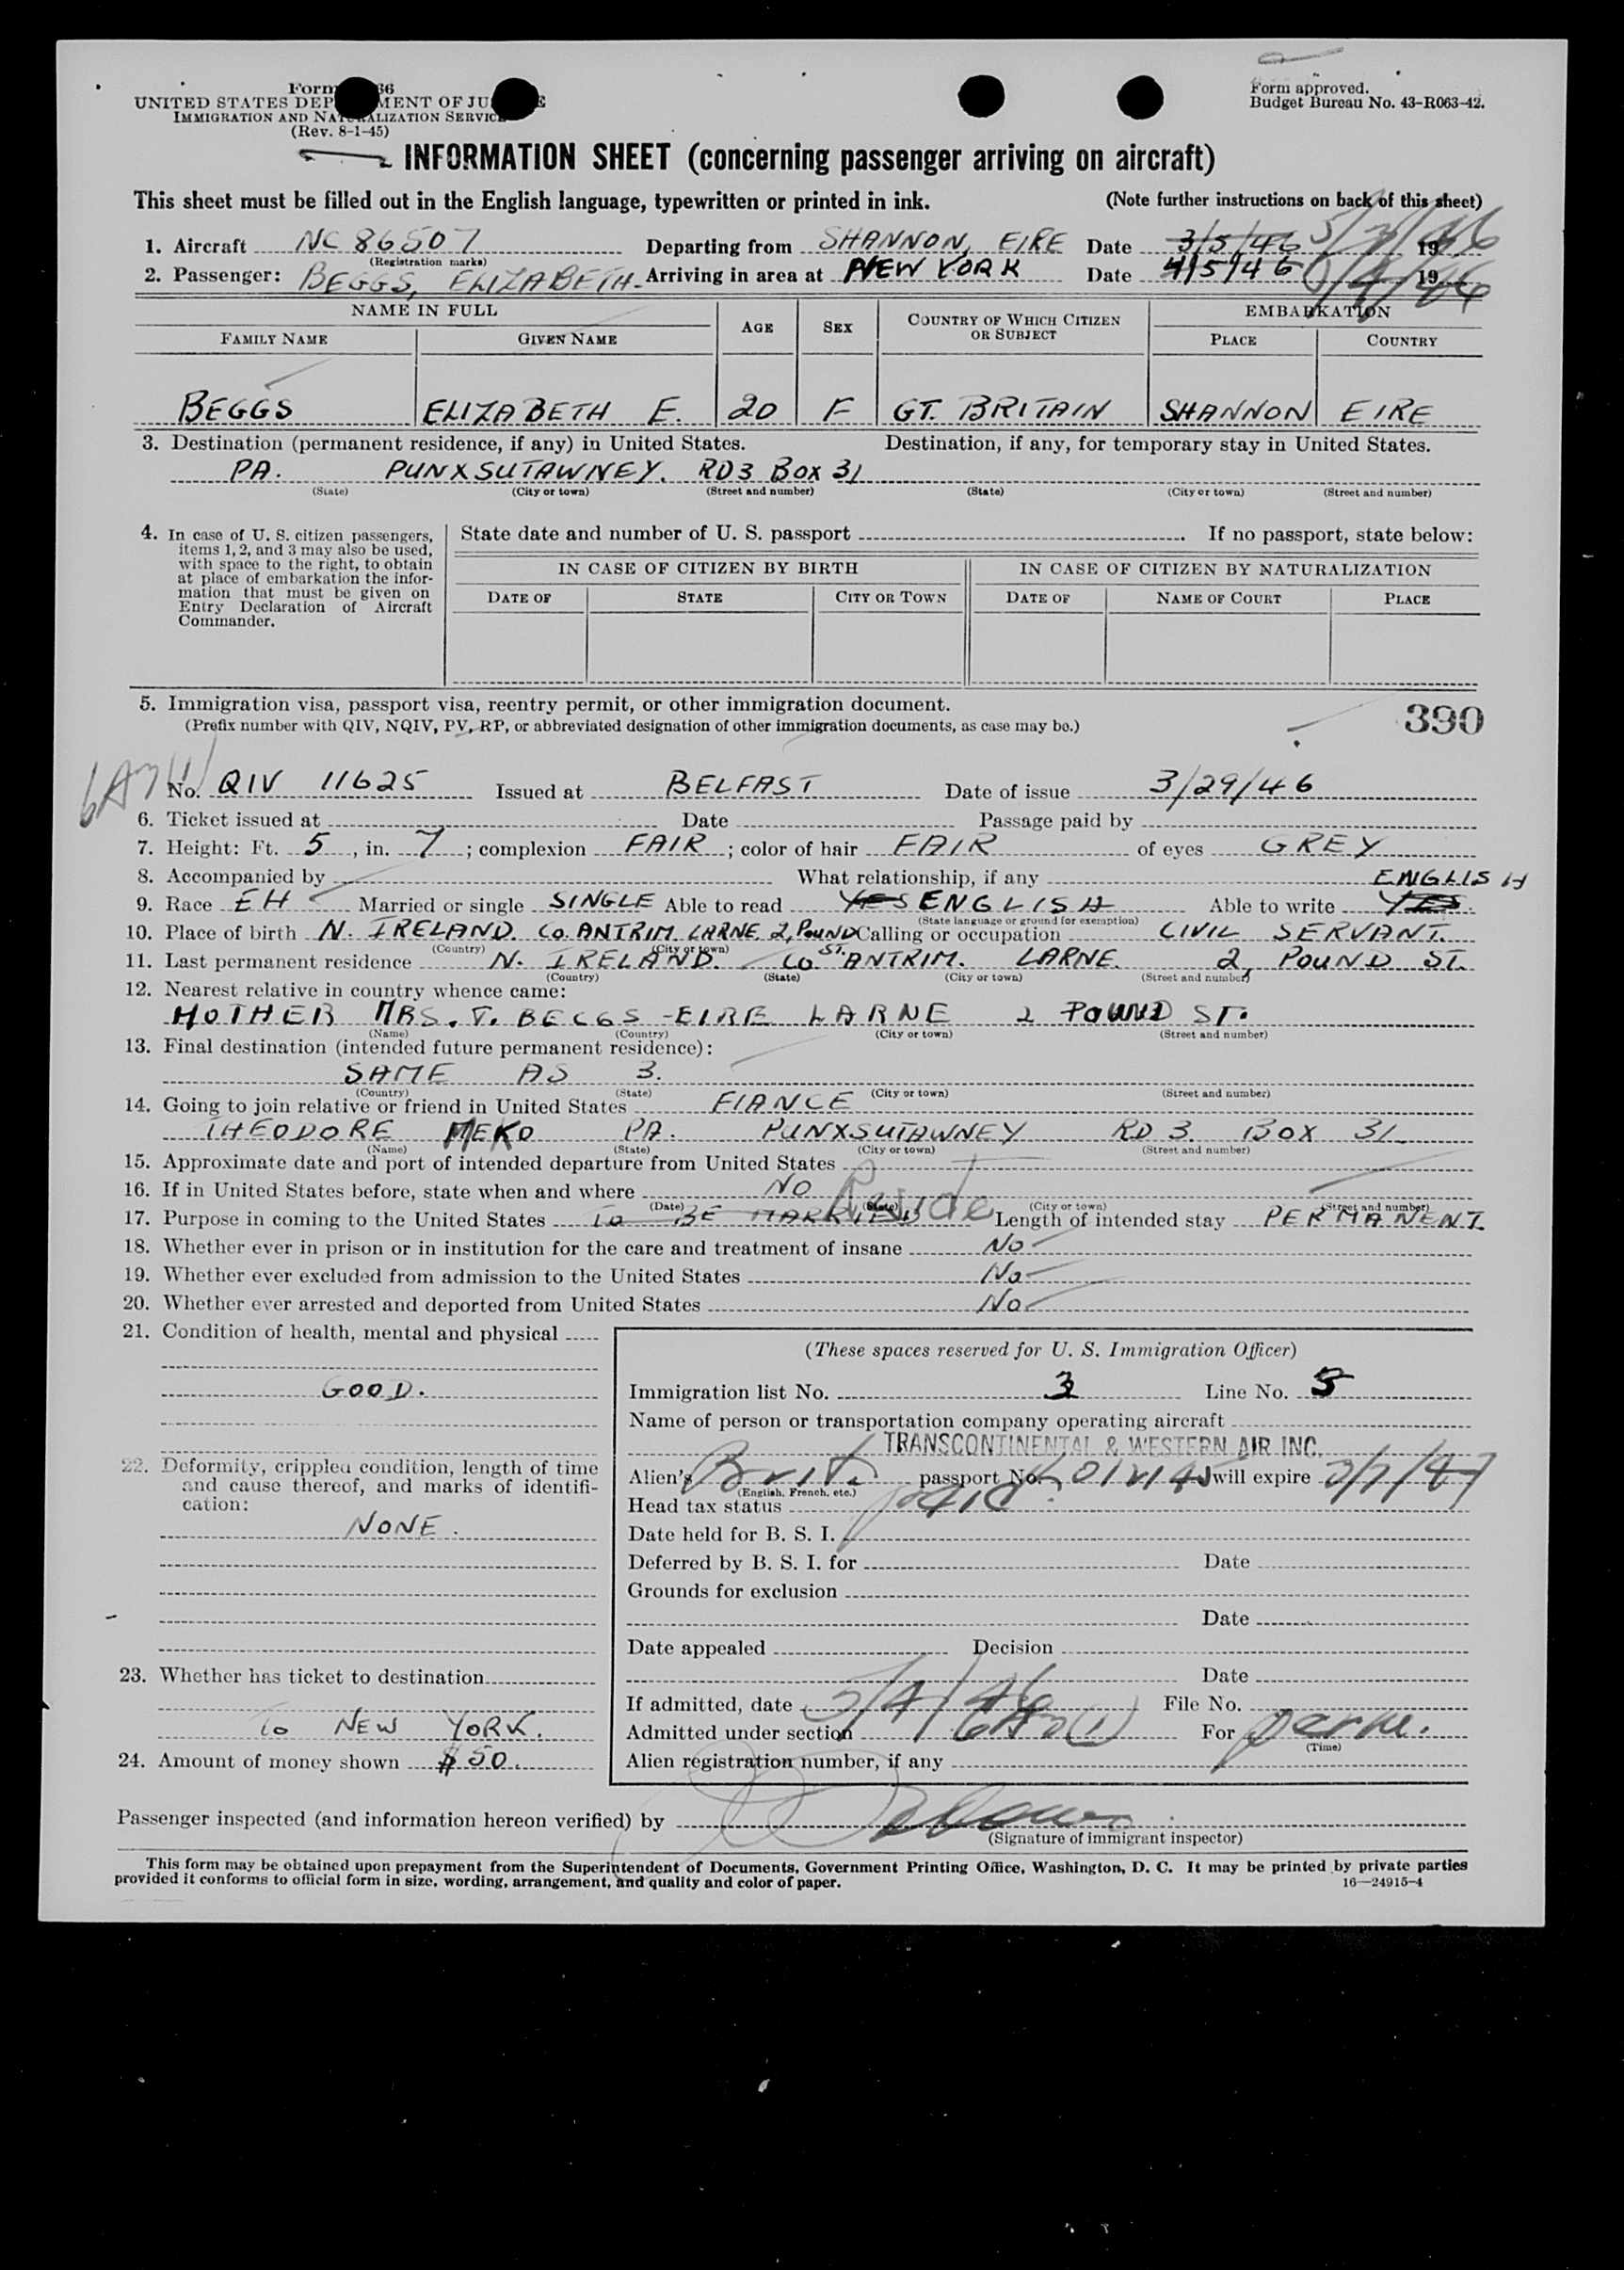 Form 66
UNITED STATES DEP MENT OF JU E
IMMIGRATION AND NATURALIZATION SERVICE
(Rev. 8-1-45)
Form approved.
Budget Bureau No. 43-R063-42.
INFORMATION SHEET (concerning passenger arriving on aircraft)
This sheet must be filled out in the English language, typewritten or printed in ink. (Note further instructions on back of this sheet)
1. Aircraft NC 86507 Departing from SHANNON, EIRE Date 3/5/46 5/3/46 19
(Registration marks)
2. Passenger: BEGGS, ELIZABETH. Arriving in area at NEW YORK Date 4/5/46 5/4/46 19
NAME IN FULL AGE SEX COUNTRY OF WHICH CITIZEN OR SUBJECT EMBARKATION
FAMILY NAME GIVEN NAME PLACE COUNTRY
BEGGS ELIZABETH E. 20 F GT. BRITAIN SHANNON EIRE
3. Destination (permanent residence, if any) in United States. Destination, if any, for temporary stay in United States.
PA. PUNXSUTAWNEY. RD3 BOX 31
(State) (City or town) (Street and number) (State) (City or town) (Street and number)
4. In case of U. S. citizen passengers, items 1, 2, and 3 may also be used, with space to the right, to obtain at place of embarkation the information that must be given on Entry Declaration of Aircraft Commander.
State date and number of U. S. passport . If no passport, state below:
IN CASE OF CITIZEN BY BIRTH IN CASE OF CITIZEN BY NATURALIZATION
DATE OF STATE CITY OR TOWN DATE OF NAME OF COURT PLACE
5. Immigration visa, passport visa, reentry permit, or other immigration document.
(Prefix number with QIV, NQIV, PV, RP, or abbreviated designation of other immigration documents, as case may be.) 390
No. QIV 11625 Issued at BELFAST Date of issue 3/29/46
6. Ticket issued at Date Passage paid by
7. Height: Ft. 5, in. 7; complexion FAIR; color of hair FAIR of eyes GREY
8. Accompanied by What relationship, if any
ENGLISH
9. Race EH Married or single SINGLE Able to read YES ENGLISH Able to write YES.
(State language or ground for exemption)
10. Place of birth N. IRELAND. CO. ANTRIM. LARNE. 2, POUND ST. Calling or occupation CIVIL SERVANT.
(Country) (City or town)
11. Last permanent residence N. IRELAND. CO. ANTRIM. LARNE. 2, POUND ST.
(Country) (State) (City or town) (Street and number)
12. Nearest relative in country whence came:
MOTHER MRS. T. BEGGS - EIRE LARNE 2 POUND ST.
(Name) (Country) (City or town) (Street and number)
13. Final destination (intended future permanent residence):
SAME AS 3.
(Country) (State) (City or town) (Street and number)
14. Going to join relative or friend in United States FIANCE
THEODORE MEKO PA. PUNXSUTAWNEY RD 3. BOX 31.
(Name) (State) (City or town) (Street and number)
15. Approximate date and port of intended departure from United States
16. If in United States before, state when and where NO
(Date) (State) (City or town) (Street and number)
17. Purpose in coming to the United States TO BE MARRIED Reside Length of intended stay PERMANENT.
18. Whether ever in prison or in institution for the care and treatment of insane NO
19. Whether ever excluded from admission to the United States NO
20. Whether ever arrested and deported from United States NO
21. Condition of health, mental and physical
GOOD.
22. Deformity, crippled condition, length of time and cause thereof, and marks of identification:
NONE.
23. Whether has ticket to destination
TO NEW YORK.
24. Amount of money shown $50.
(These spaces reserved for U. S. Immigration Officer)
Immigration list No. 3 Line No. 5
Name of person or transportation company operating aircraft
TRANSCONTINENTAL & WESTERN AIR INC.
Alien's Brit. passport No. will expire
(English, French, etc.)
Head tax status paid
Date held for B. S. I.
Deferred by B. S. I. for Date
Grounds for exclusion
Date
Date appealed Decision
Date
If admitted, date 5/4/46 File No.
Admitted under section For perm.
(Time)
Alien registration number, if any
Passenger inspected (and information hereon verified) by
(Signature of immigrant inspector)
This form may be obtained upon prepayment from the Superintendent of Documents, Government Printing Office, Washington, D. C. It may be printed by private parties
provided it conforms to official form in size, wording, arrangement, and quality and color of paper. 16—24915-4